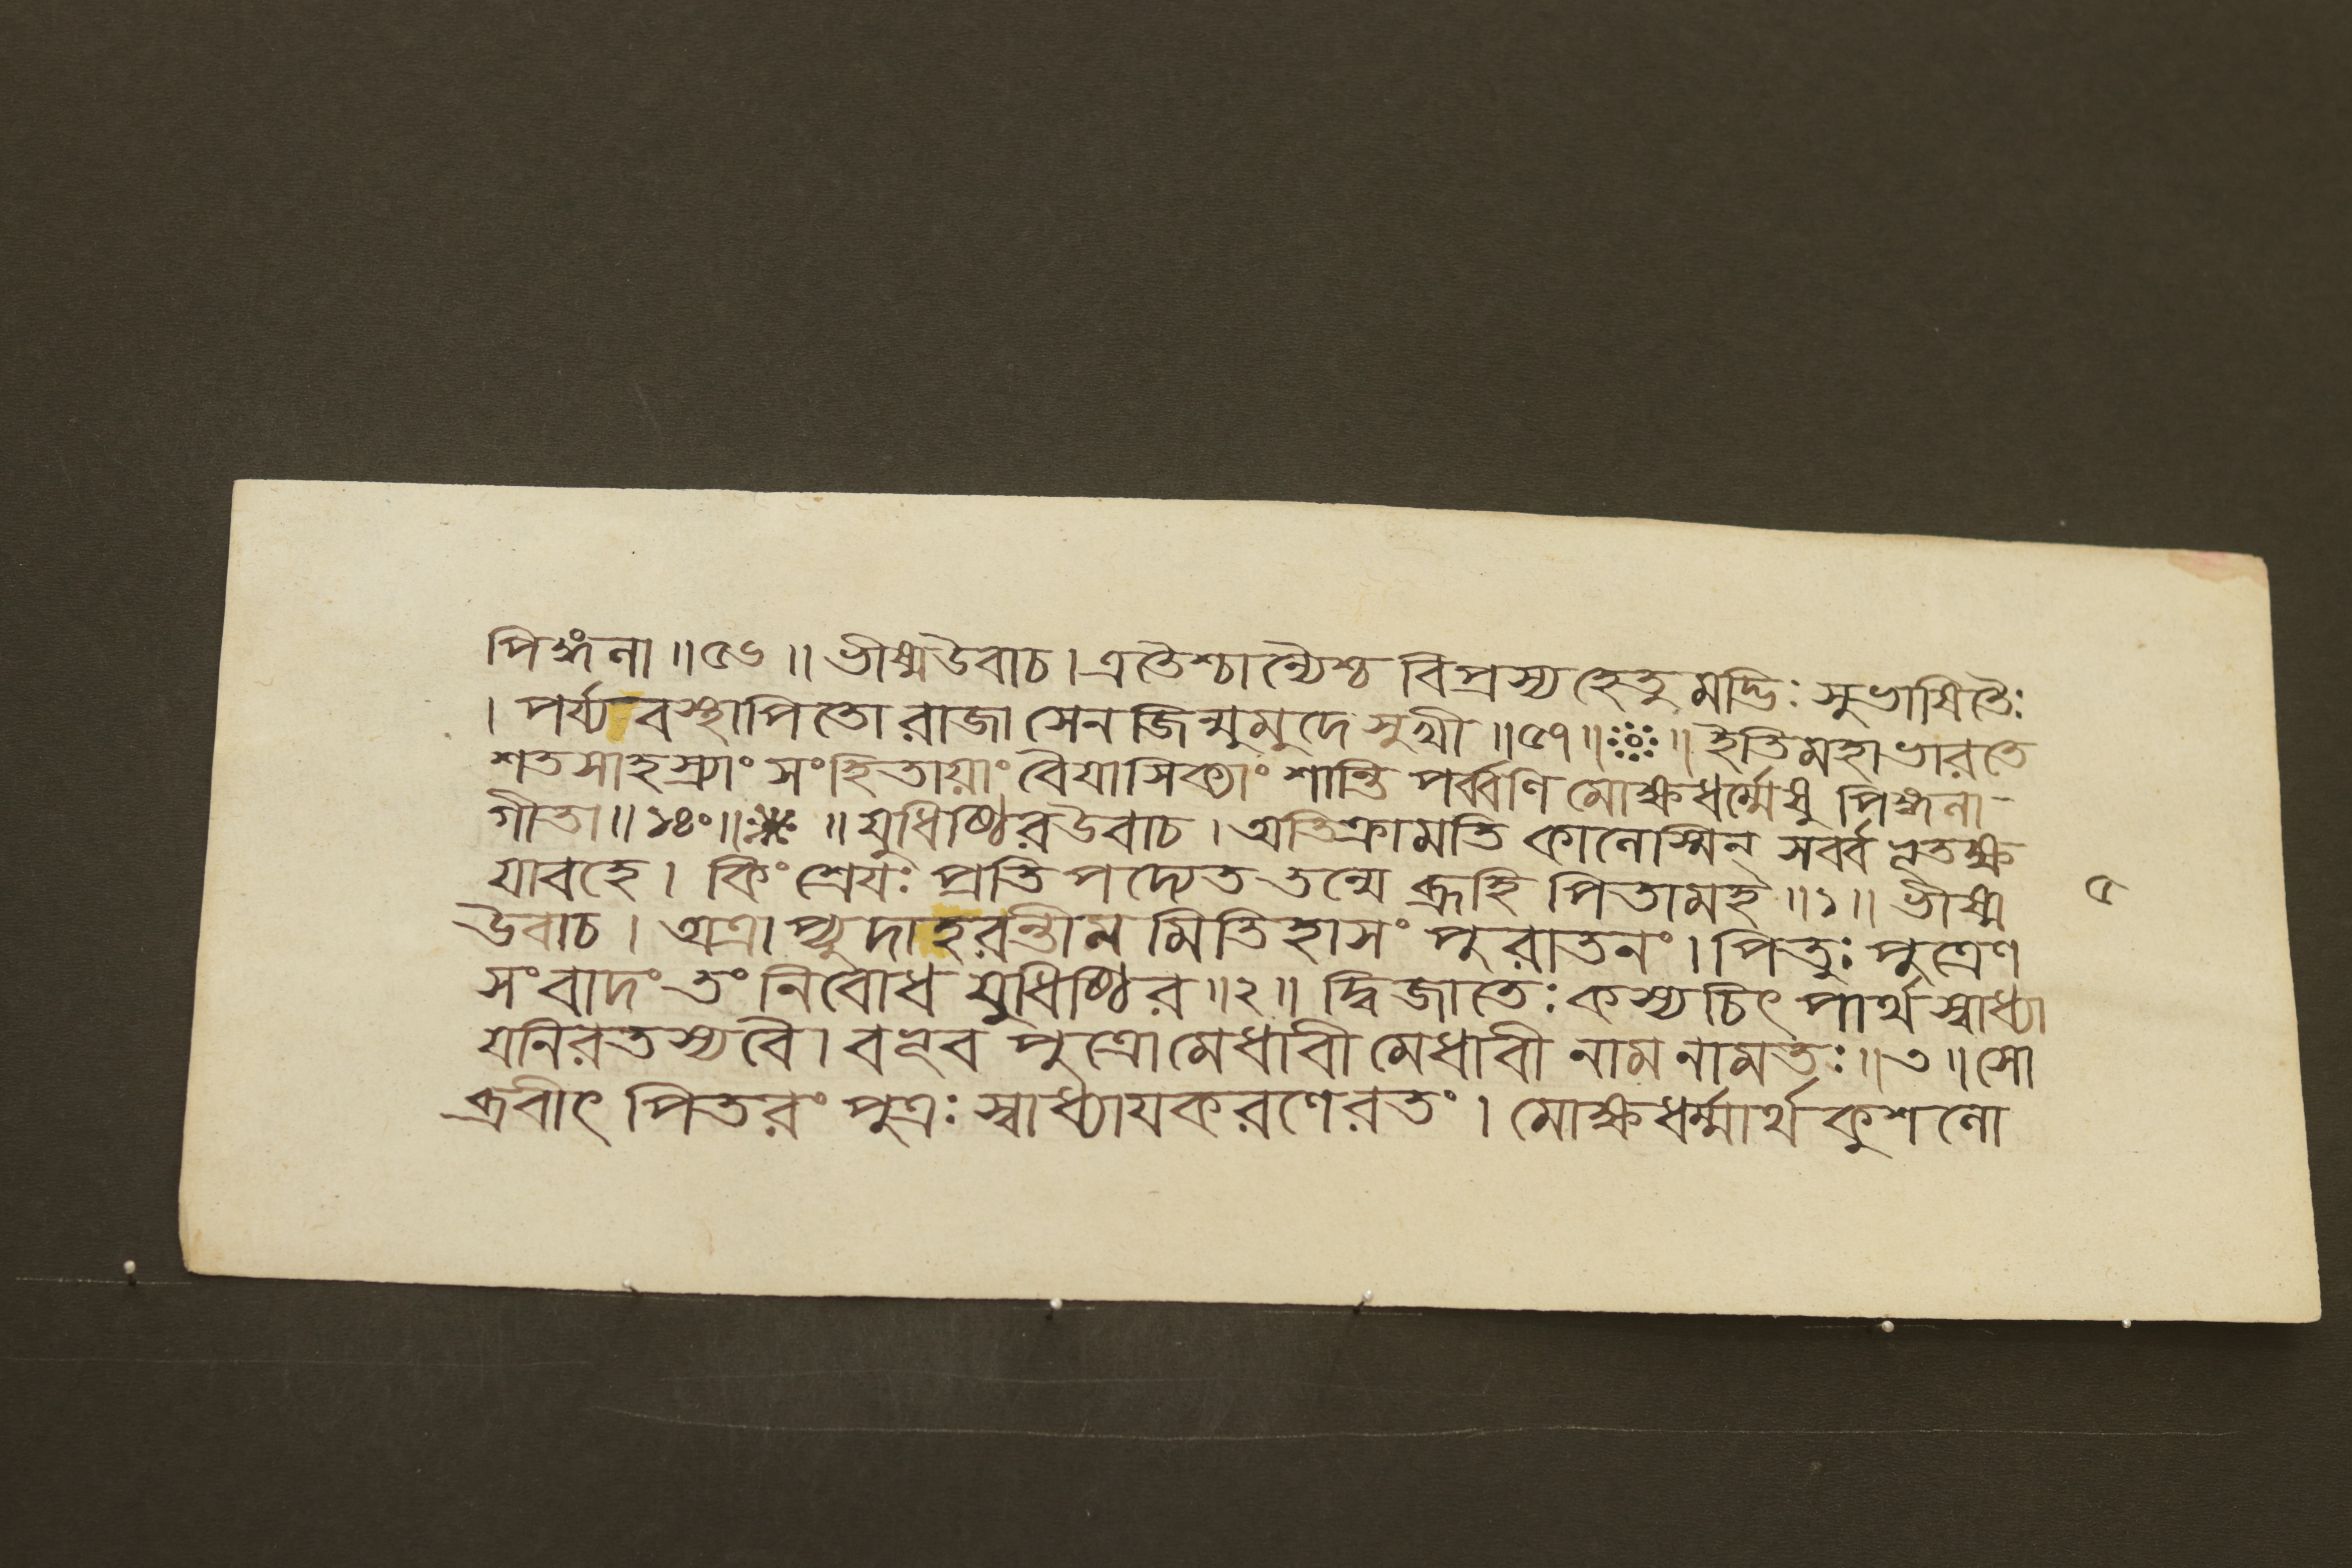 পিঙ্গলা ॥ ৫৬ ॥ ভীষ্মউবাচ । এতৈশ্চান্যৈশ্চ বিপ্রস্য হেতুমদ্ভিঃ সুভাষিতৈঃ
। পর্য্যবস্থাপিতো রাজা সেনজিন্মুমুদে সুখী ॥ ৫৭ ॥ ॥ ইতিমহাভারতে
শতসাহস্র্যাং সংহিতায়াং বৈয়াসিক্যাং শান্তি পর্ব্বণি মোক্ষধর্ম্মেষু পিঙ্গলা-
গীতা ॥ ১৪০ ॥ ॥ যুধিষ্ঠিরউবাচ । অতিক্রামতি কালেস্মিন্ সর্ব্বভূতক্ষ
যাবহে । কিং শ্রেযঃ প্রতিপদ্যেত তন্মে ব্রূহি পিতামহ ॥ ১ ॥ ভীষ্ম
উবাচ । অত্রাপ্যুদাহরন্তীমমিতিহাসং পুরাতনং । পিতুঃ পুত্রেণ
সংবাদং তং নিবোধ যুধিষ্ঠির ॥ ২ ॥ দ্বিজাতেঃ কস্যচিৎ পার্থ স্বাধ্যা
যনিরতস্য বৈ । বভূব পুত্রো মেধাবী মেধাবী নাম নামতঃ ॥ ৩ ॥ সো
ব্রবীৎ পিতরং পুত্রঃ স্বাধ্যাযকরণেরতং । মোক্ষধর্ম্মার্থ কুশলো
৫